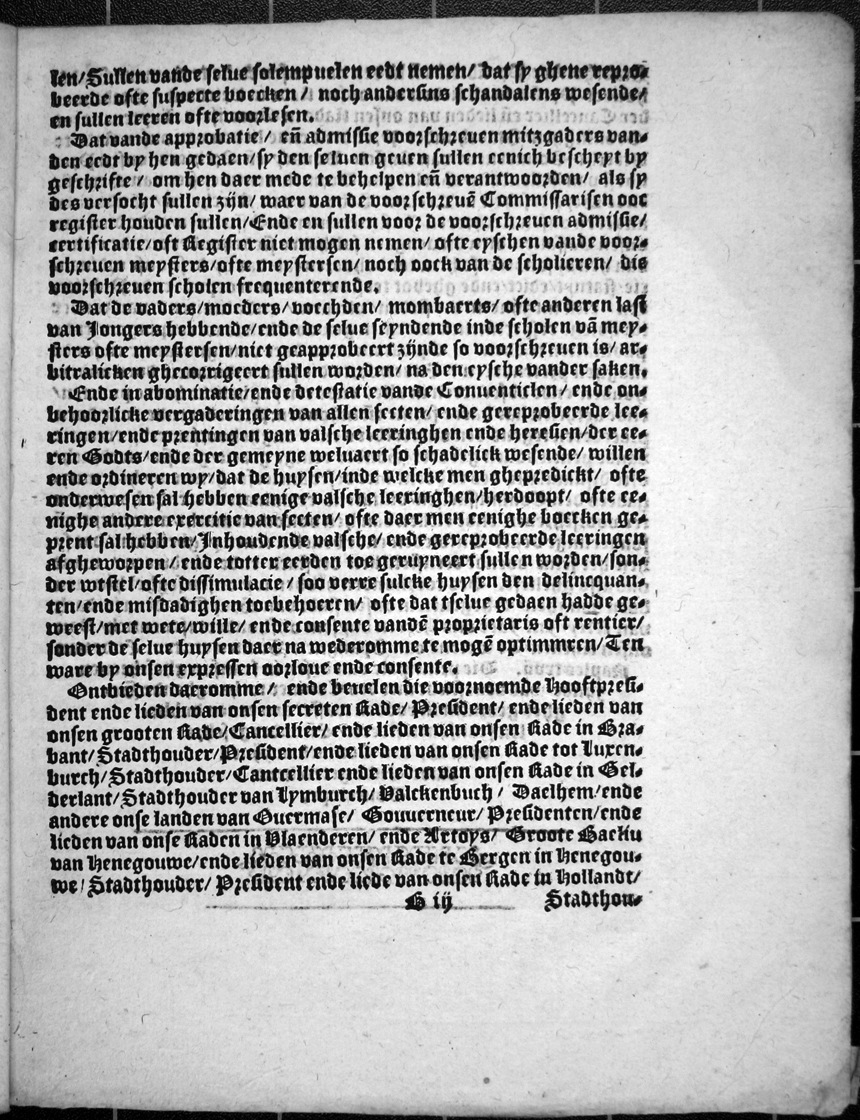 len/Sullen vande selue solempnelen eedt nemen/ dat sy ghene repro-
beerde ofte suspecte boecken/ noch andersins schandalens wesende/
en sullen leeren ofte voorlesen.
Dat vande approbatie/ eñ admissie voorschreuen mitzgaders van-
den eedt by hen gedaen/sy den seluen geuen sullen eenich bescheyt by
geschrifte/ om hen daer mede te behelpen eñ verantwoorden/ als sy
des versocht sullen zijn/waer van de voorschreuē Commissarisen ooc
register houden sullen/Ende en sullen voor de voorschreuen admissie/
certificatie/oft Register niet mogen nemen/ ofte eyschen vande voor-
schreuen meysters/ofte meystersen/ noch oock van de scholieren/ die
voorschreuen scholen frequenterende.
Dat de vaders/moeders/voechden/ mombaerts/ofte anderen last
van Jongers hebbende/ende de selue seyndende inde scholen vā mey-
sters ofte meystersen/niet geapprobeert zijnde so voorschreuen is/ ar-
bitralicken ghecorrigeert sullen worden/ na den eysche vander saken.
Ende in abominatie/ende detestatie vande Conuenticlen/ ende on-
behoorlicke vergaderingen van allen secten/ ende gereprobeerde lee-
ringen/ende prentingen van valsche leeringhen ende heresien/der ee-
ren Godts/ende der gemeyne weluaert so schadelick wesende/ willen
ende ordineren wy/dat de huysen/inde welcke men ghepredickt/ ofte
onderwesen sal hebben eenige valsche leeringhen/herdoopt/ ofte ee-
nighe andere exercitie van secten/ ofte daer men eenighe boecken ge-
prent sal hebben/Inhoudende valsche/ ende gereprobeerde leeringen
afgheworpen/ ende totter eerden toe geruyneert sullen worden/son-
der wtstel/ofte dissimulacie/ soo verre sulcke huysen den delincquan-
ten/ende misdadighen toebehoeren/ ofte dat tselue gedaen hadde ge-
weest/met wete/wille/ ende consente vandē proprietaris oft rentier/
sonder de selue huysen daer na wederomme te mogē optimmren/Ten
ware by onsen expressen oorloue ende consente.
Ontbieden daeromme/ ende beuelen die voornoemde Hooftpresi-
dent ende lieden van onsen secreten Rade/ President/ ende lieden van
onsen grooten Rade/Cancellier/ ende lieden van onsen Rade in Bra-
bant/Stadthouder/President/ende lieden van onsen Rade tot Luxen-
burch/Stadthouder/Cantcellier ende lieden van onsen Rade in Gel-
derlant/Stadthouder van Lymburch/ Valckenbuch/ Daelhem/ende
andere onse landen van Ouermase/ Gouuerneur/ Presidenten/ende
lieden van onse Raden in Vlaenderen/ ende Artoys/ Groote Bacliu
van Henegouwe/ende lieden van onsen Rade te Bergen in Henegou-
we/Stadthouder/ President ende liede van onsen Rade in Hollandt/
B iij Stadthou-